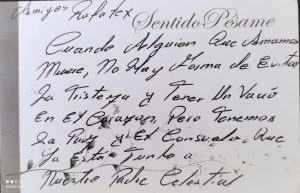 Amigos Rafatex
Sentido Pésame
Cuando Alguien Que Amamos
Muere, No Hay Forma de Evitar
La Tristeza y Tener Un Vacío
En El Corazon, Pero Tenemos
La Paz y El Consuelo Que
Ya Está Junto a
Nuestro Padre Celestial